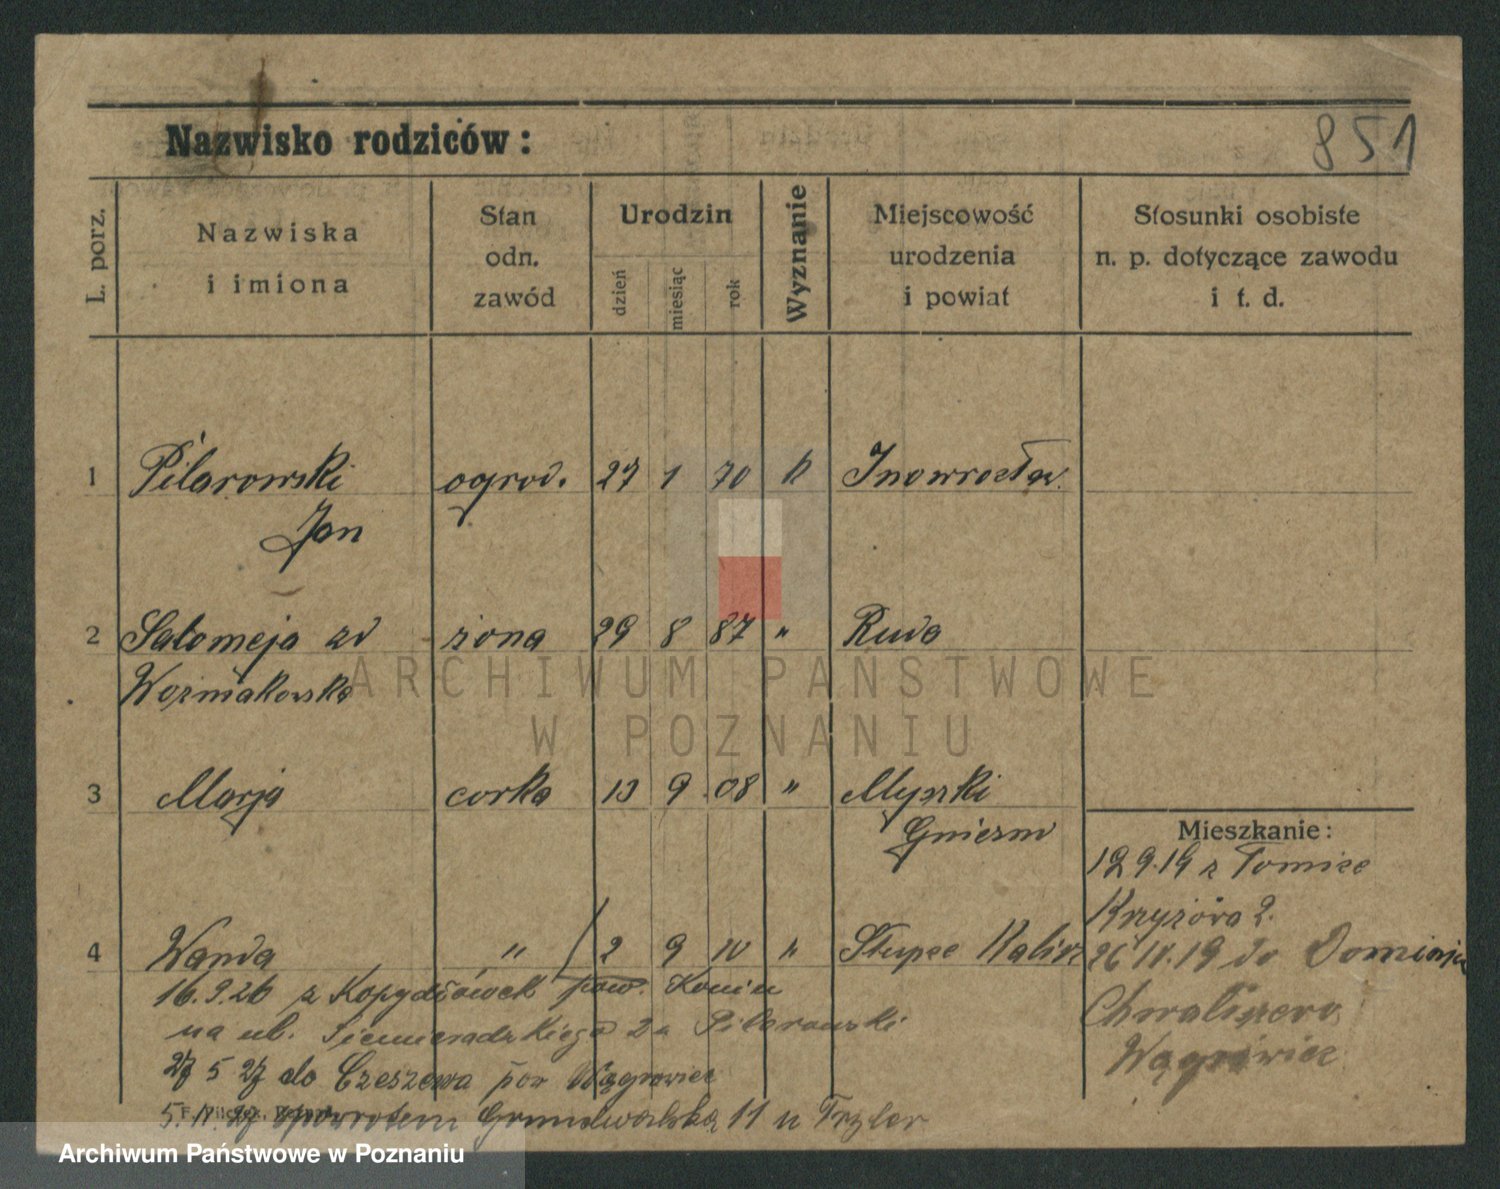 Nazwisko rodziców:
851
L. porz.
Nazwiska
i imiona
Stan
odn.
zawód
Urodzin
dzień
miesiąc
rok
Wyznanie
Miejscowość
urodzenia
i powiat
Stosunki osobiste
n. p. dotyczące zawodu
i t. d.
1 Pilarowski ogrod. 27 1 70 k Inowrocław
Jan
2 Salomeja zd żona 29 8 87 " Ruda
Woźniakowska
3 Marja corka 13 9 08 " Myszki
Gniezno
4 Wanda " 2 9 10 " Słupce Kalisz
Mieszkanie:
12 9.19 z Łomice
Krzyżowa 2.
26 11.19 do
Chwaliszewo
Wągrowiec
16.9.26 z Kopydłówek pow. Konin
na ul. Siemieradzkiego 2a Pilarowski
27 5 27 do Czeszewa pow Wągrowiec
5.11.27 spowrotem Grunwaldzka 11 u
ARCHIWUM PAŃSTWOWE
W POZNANIU
Archiwum Państwowe w Poznaniu